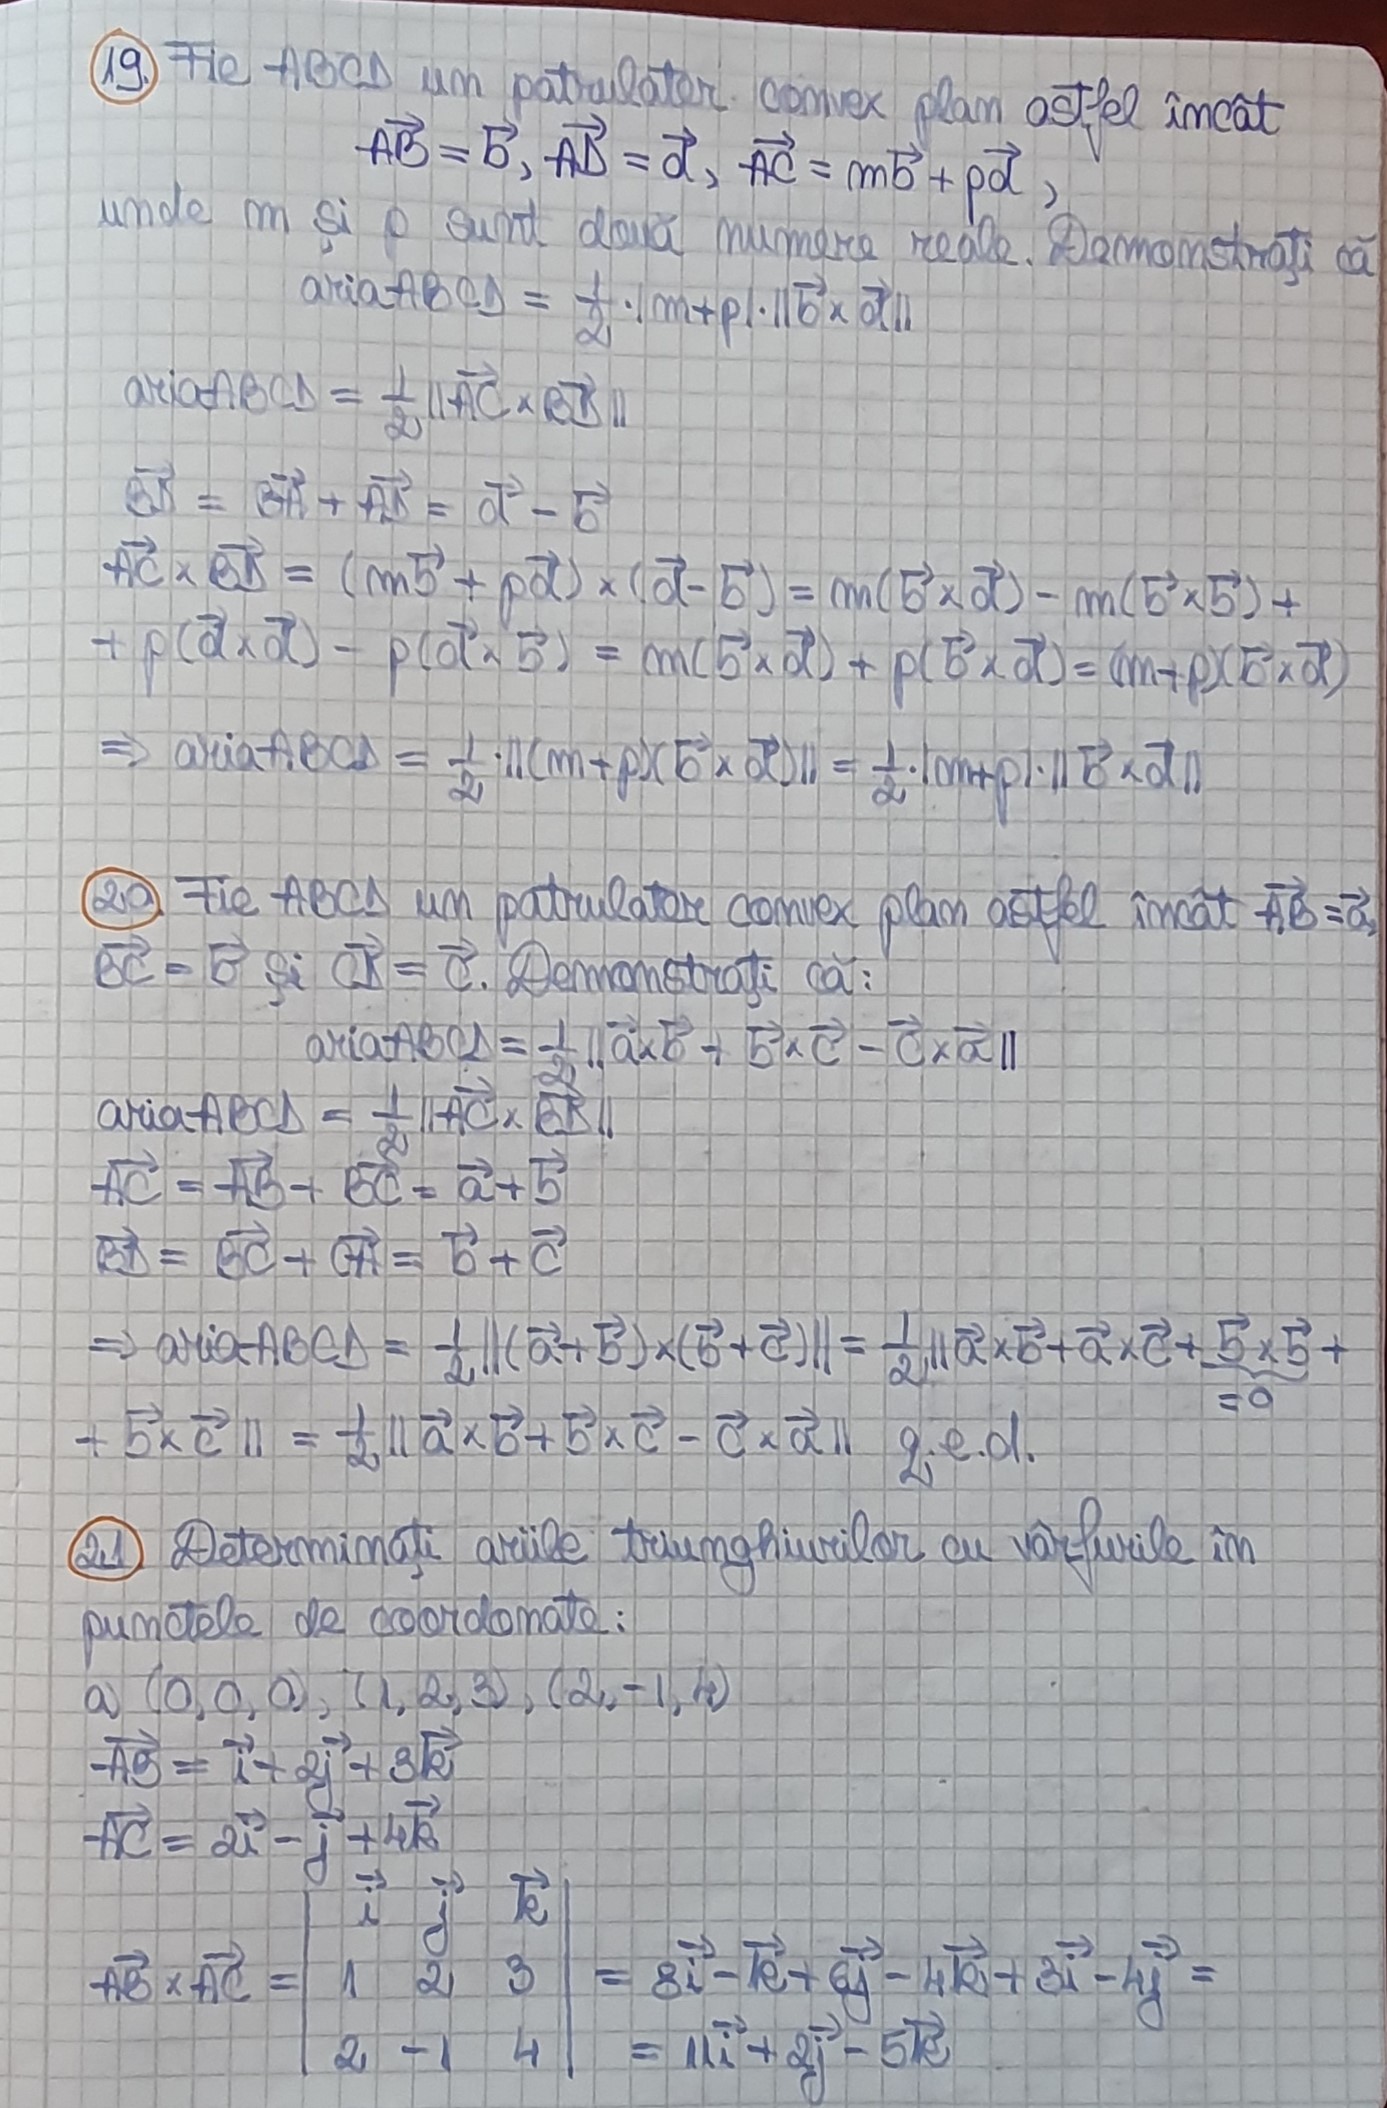 19. Fie ABCD un patrulater convex plan astfel încât
$\vec{AB} = \vec{b}, \vec{AD} = \vec{d}, \vec{AC} = m\vec{b} + p\vec{d},$
unde m și p sunt două numere reale. Demonstrați că
aria ABCD = $\frac{1}{2} \cdot |m+p| \cdot ||\vec{b} \times \vec{d}||$
aria ABCD = $\frac{1}{2} ||\vec{AC} \times \vec{BD}||$
$\vec{BD} = \vec{BA} + \vec{AD} = \vec{d} - \vec{b}$
$\vec{AC} \times \vec{BD} = (m\vec{b} + p\vec{d}) \times (\vec{d} - \vec{b}) = m(\vec{b} \times \vec{d}) - m(\vec{b} \times \vec{b}) +$
$+ p(\vec{d} \times \vec{d}) - p(\vec{d} \times \vec{b}) = m(\vec{b} \times \vec{d}) + p(\vec{b} \times \vec{d}) = (m+p)(\vec{b} \times \vec{d})$
⇒ aria ABCD = $\frac{1}{2} \cdot ||(m+p)(\vec{b} \times \vec{d})|| = \frac{1}{2} \cdot |m+p| \cdot ||\vec{b} \times \vec{d}||$
20. Fie ABCD un patrulater convex plan astfel încât $\vec{AB} = \vec{a},$
$\vec{BC} = \vec{b}$ și $\vec{CD} = \vec{c}$. Demonstrați că:
aria ABCD = $\frac{1}{2} ||\vec{a} \times \vec{b} + \vec{b} \times \vec{c} - \vec{c} \times \vec{a}||$
aria ABCD = $\frac{1}{2} ||\vec{AC} \times \vec{BD}||$
$\vec{AC} = \vec{AB} + \vec{BC} = \vec{a} + \vec{b}$
$\vec{BD} = \vec{BC} + \vec{CA} = \vec{b} + \vec{c}$
⇒ aria ABCD = $\frac{1}{2} ||(\vec{a} + \vec{b}) \times (\vec{b} + \vec{c})|| = \frac{1}{2} ||\vec{a} \times \vec{b} + \vec{a} \times \vec{c} + \underbrace{\vec{b} \times \vec{b}}_{=0} +$
$+ \vec{b} \times \vec{c}|| = \frac{1}{2} ||\vec{a} \times \vec{b} + \vec{b} \times \vec{c} - \vec{c} \times \vec{a}||$ q.e.d.
21 Determinați ariile triunghiurilor cu vârfurile în
punctele de coordonate:
a) (0,0,0), (1,2,3), (2,-1,4)
$\vec{AB} = \vec{i} + 2\vec{j} + 3\vec{k}$
$\vec{AC} = 2\vec{i} - \vec{j} + 4\vec{k}$
$\vec{AB} \times \vec{AC} = \begin{vmatrix} \vec{i} & \vec{j} & \vec{k} \\ 1 & 2 & 3 \\ 2 & -1 & 4 \end{vmatrix} = 8\vec{i} - \vec{k} + 6\vec{j} - 4\vec{k} + 3\vec{i} - 4\vec{j} =$
$= 11\vec{i} + 2\vec{j} - 5\vec{k}$